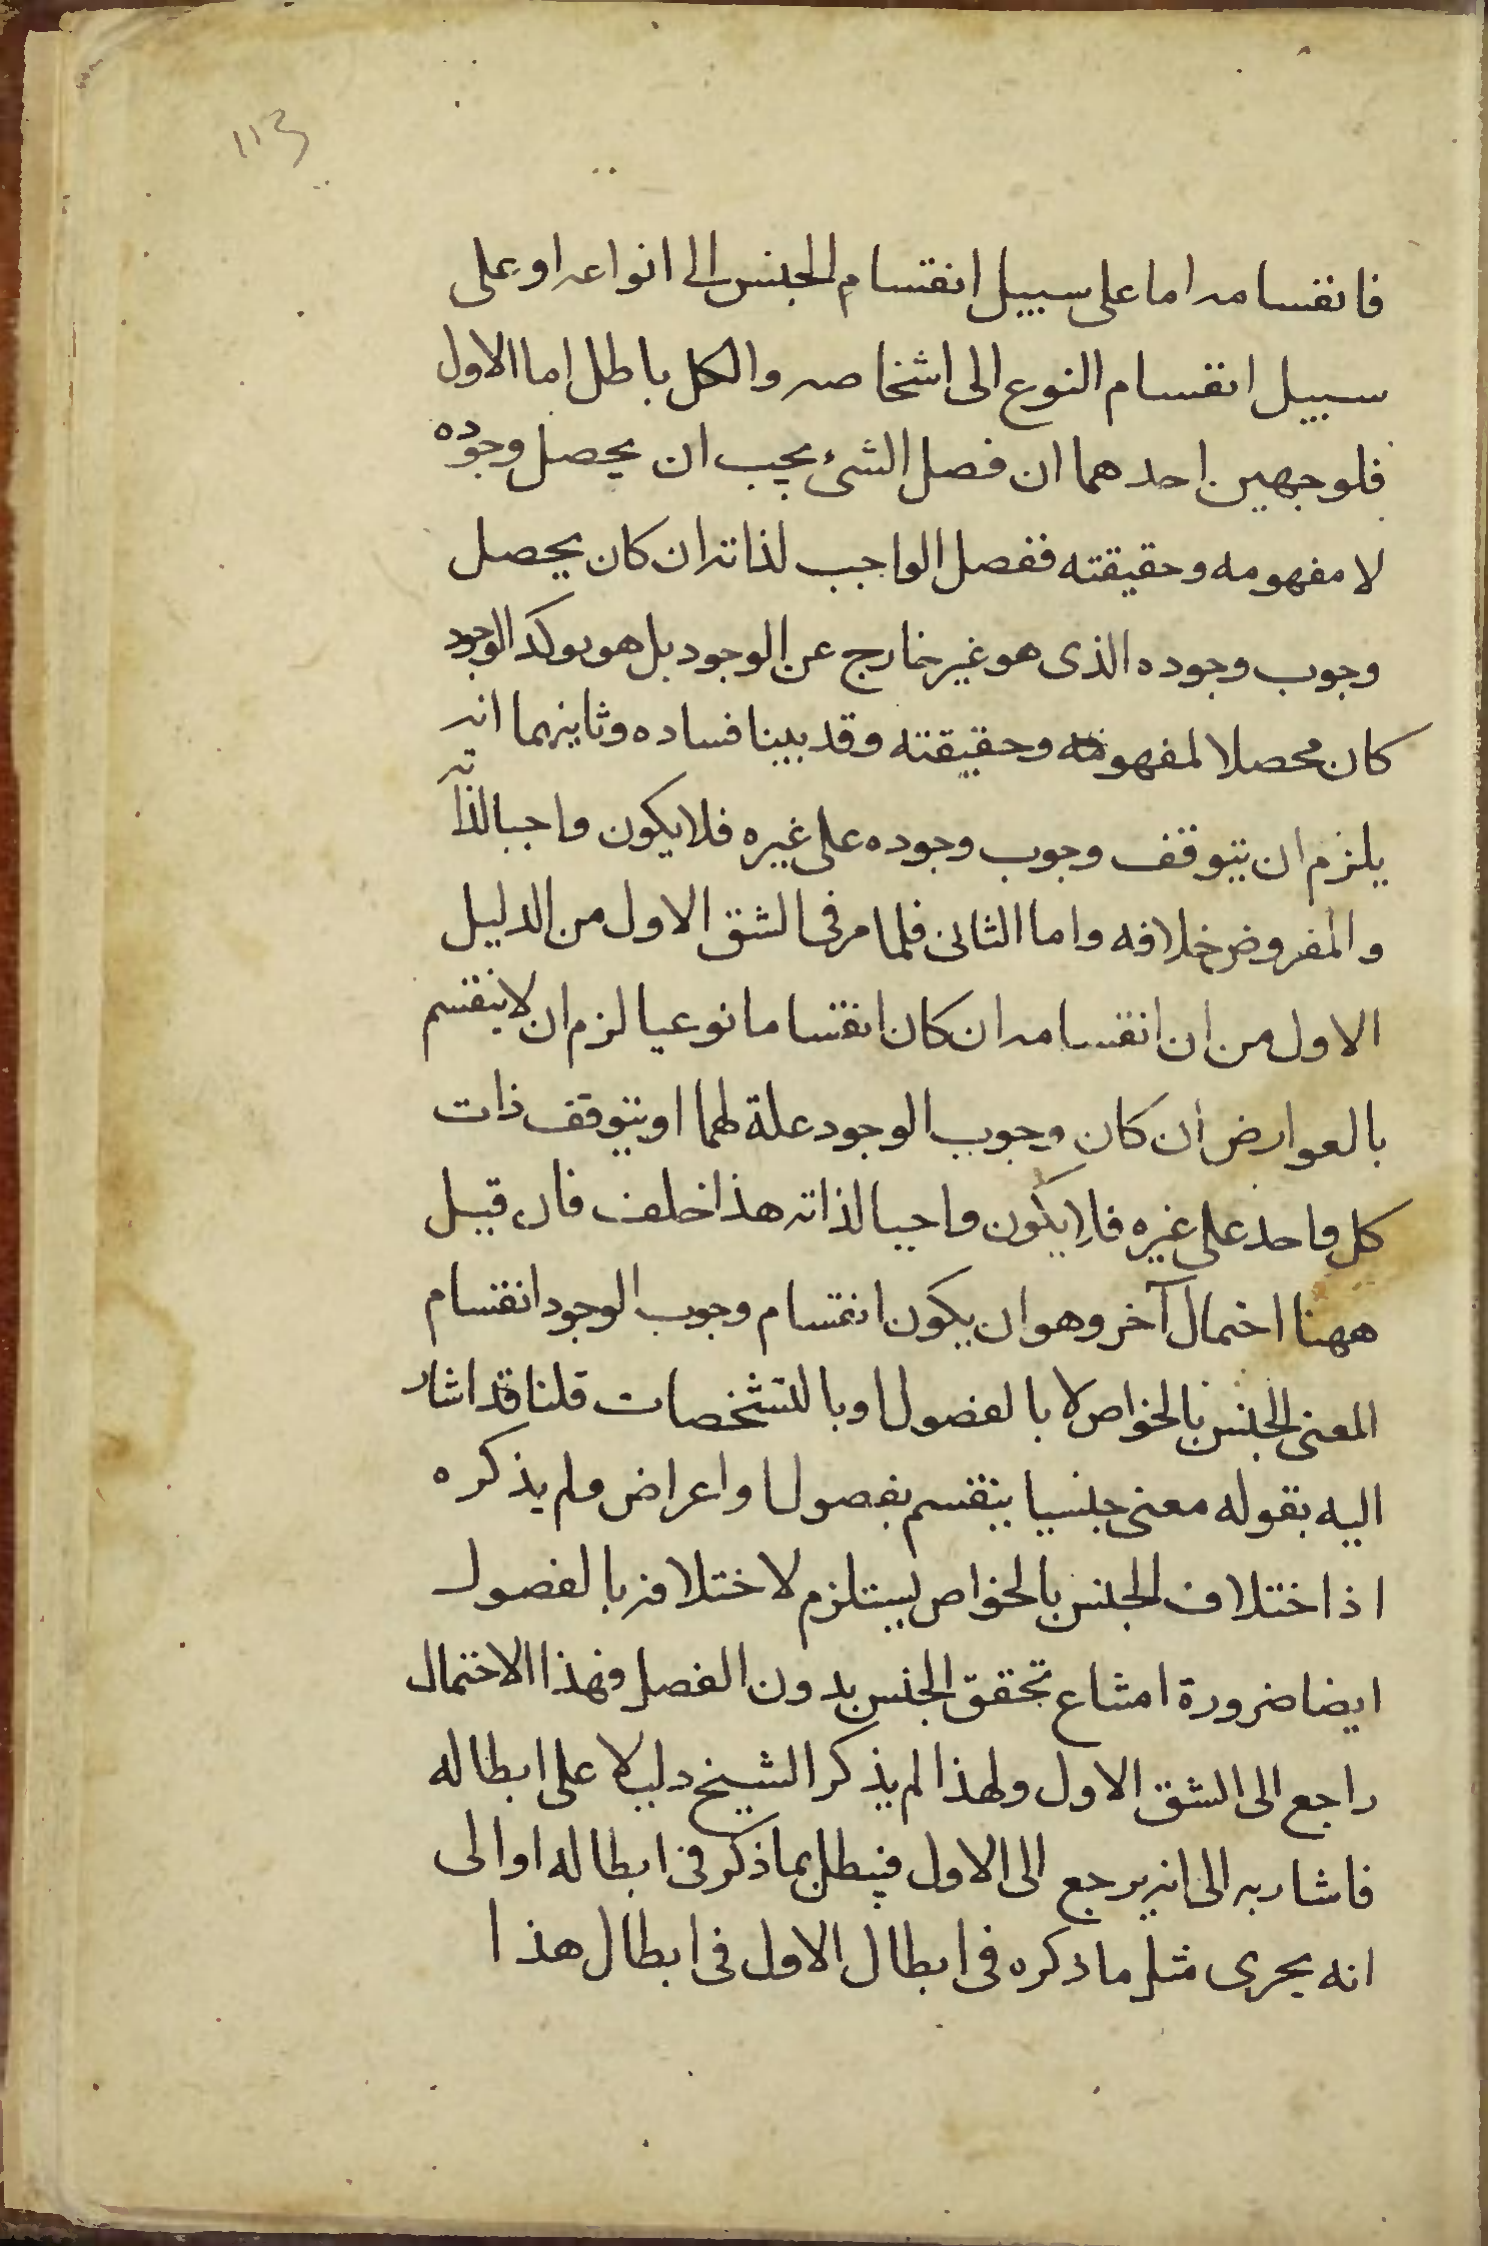 113
فانقسامه اما على سبيل انقسام الجنس الى انواعه او على
سبيل انقسام النوع الى اشخاصه والكل باطل اما الاول
فلوجهين احدهما ان فصل الشىء يجب ان يحصل وجوده
لا مفهومه وحقيقته ففصل الواجب لذاته ان كان يحصل
وجوب وجوده الذى هو غير خارج عن الوجود بل هو يوكد الوجود
كان محصلا لمفهومه وحقيقته وقد بينا فساده وثانيهما انه
يلزم ان يتوقف وجوب وجوده على غيره فلا يكون واجبا لذاته
والمفروض خلافه واما الثانى فلما مر فى الشق الاول من الدليل
الاول من ان انقسامه ان كان انقساما نوعيا لزم ان لا ينقسم
بالعوارض ان كان وجوب الوجود علة لهما او يتوقف ذات
كل واحد على غيره فلا يكون واجبا لذاته هذا خلف فان قيل
ههنا احتمال آخر وهو ان يكون انقسام وجوب الوجود انقسام
المعنى الجنس بالخواص لا بالفصول او بالتشخصات قلنا قد اشار
اليه بقوله معنى جنسيا ينقسم بفصول او اعراض ولم يذكره
اذ اختلاف الجنس بالخواص يستلزم لاختلافه بالفصول
ايضا ضرورة امتناع تحقق الجنس بدون الفصل فهذا الاحتمال
راجع الى الشق الاول ولهذا لم يذكر الشيخ دليلا على ابطاله
فاشار به الى انه يرجع الى الاول فيبطل بما ذكر فى ابطاله او الى
انه يجرى مثل ما ذكره فى ابطال الاول فى ابطال هذا